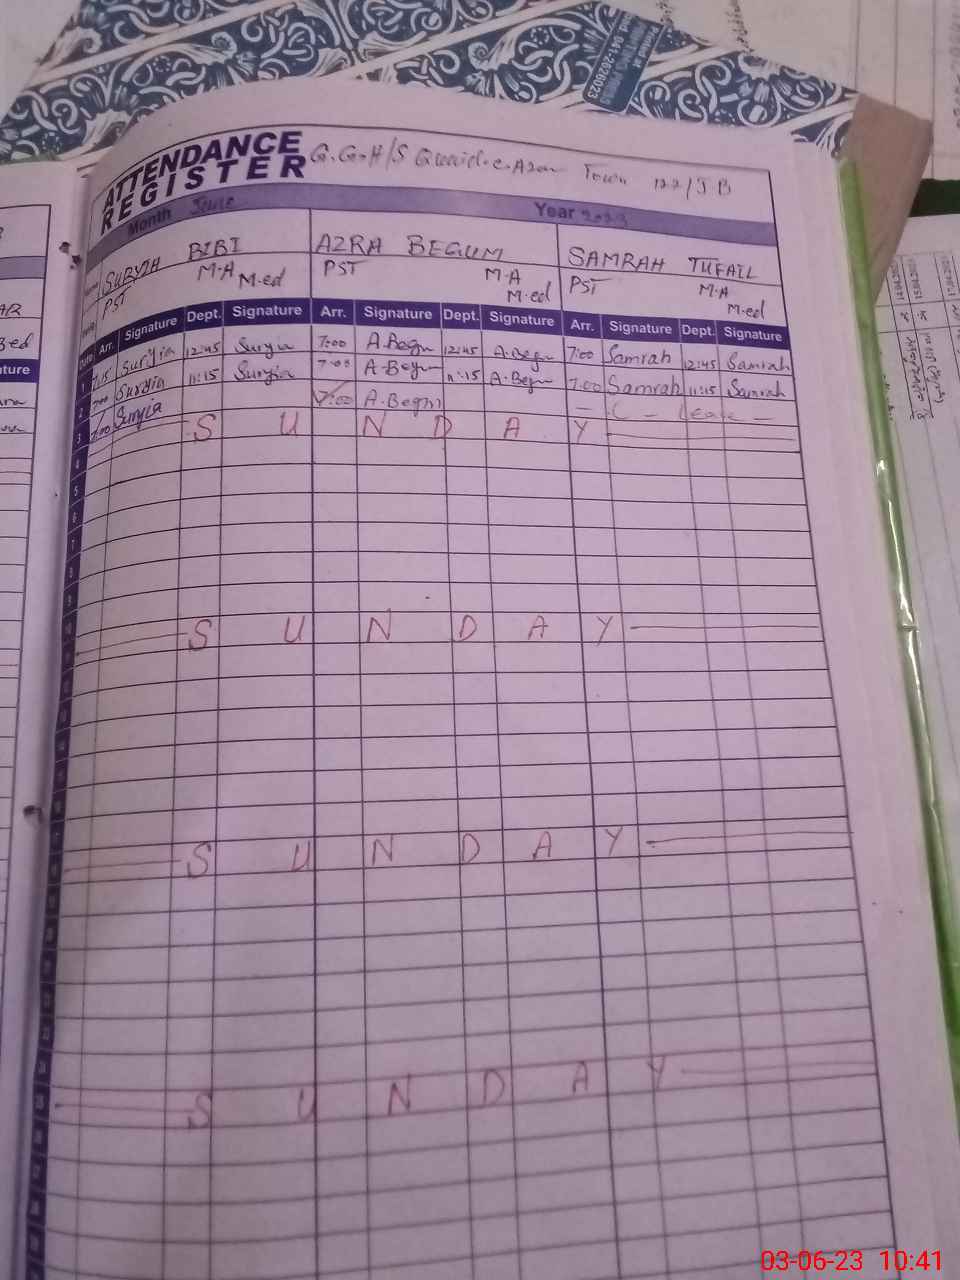 Printed at
0412626023
ATTENDANCE
REGISTER
G.G.H/S Quaid-e-Azam Town 122/J.B
Month June Year 2023
SURYIA BIBI AZRA BEGUM SAMRAH TUFAIL
PST M-A M.ed PST M-A M.ed PST M-A M.ed
Date Arr. Signature Dept. Signature Arr. Signature Dept. Signature Arr. Signature Dept. Signature
1 7:15 Suryia 12:45 Suryia 7:00 A.Begum 12:45 A.Begum 7:00 Samrah 12:45 Samrah
2 7:00 Suryia 11:15 Suryia 7:00 A.Begum 11:15 A.Begum 7:00 Samrah 11:15 Samrah
3 7:00 Suryia 7:00 A.Begum — C — leave —
4 S U N D A Y
5
6
7
8
9
10
S U N D A Y
S U N D A Y
S U N D A Y
03-06-23 10:41